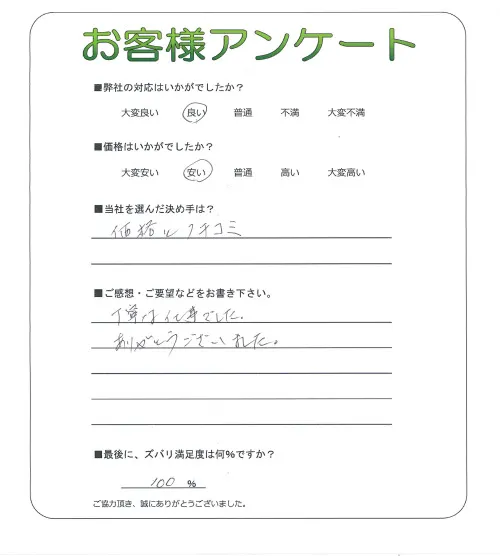 お客様アンケート
■弊社の対応はいかがでしたか？
大変良い 良い 普通 不満 大変不満
■価格はいかがでしたか？
大変安い 安い 普通 高い 大変高い
■当社を選んだ決め手は？
価格と クチコミ
■ご感想・ご要望などをお書き下さい。
丁寧な仕事でした。
ありがとうございました。
■最後に、ズバリ満足度は何％ですか？
100 ％
ご協力頂き、誠にありがとうございました。